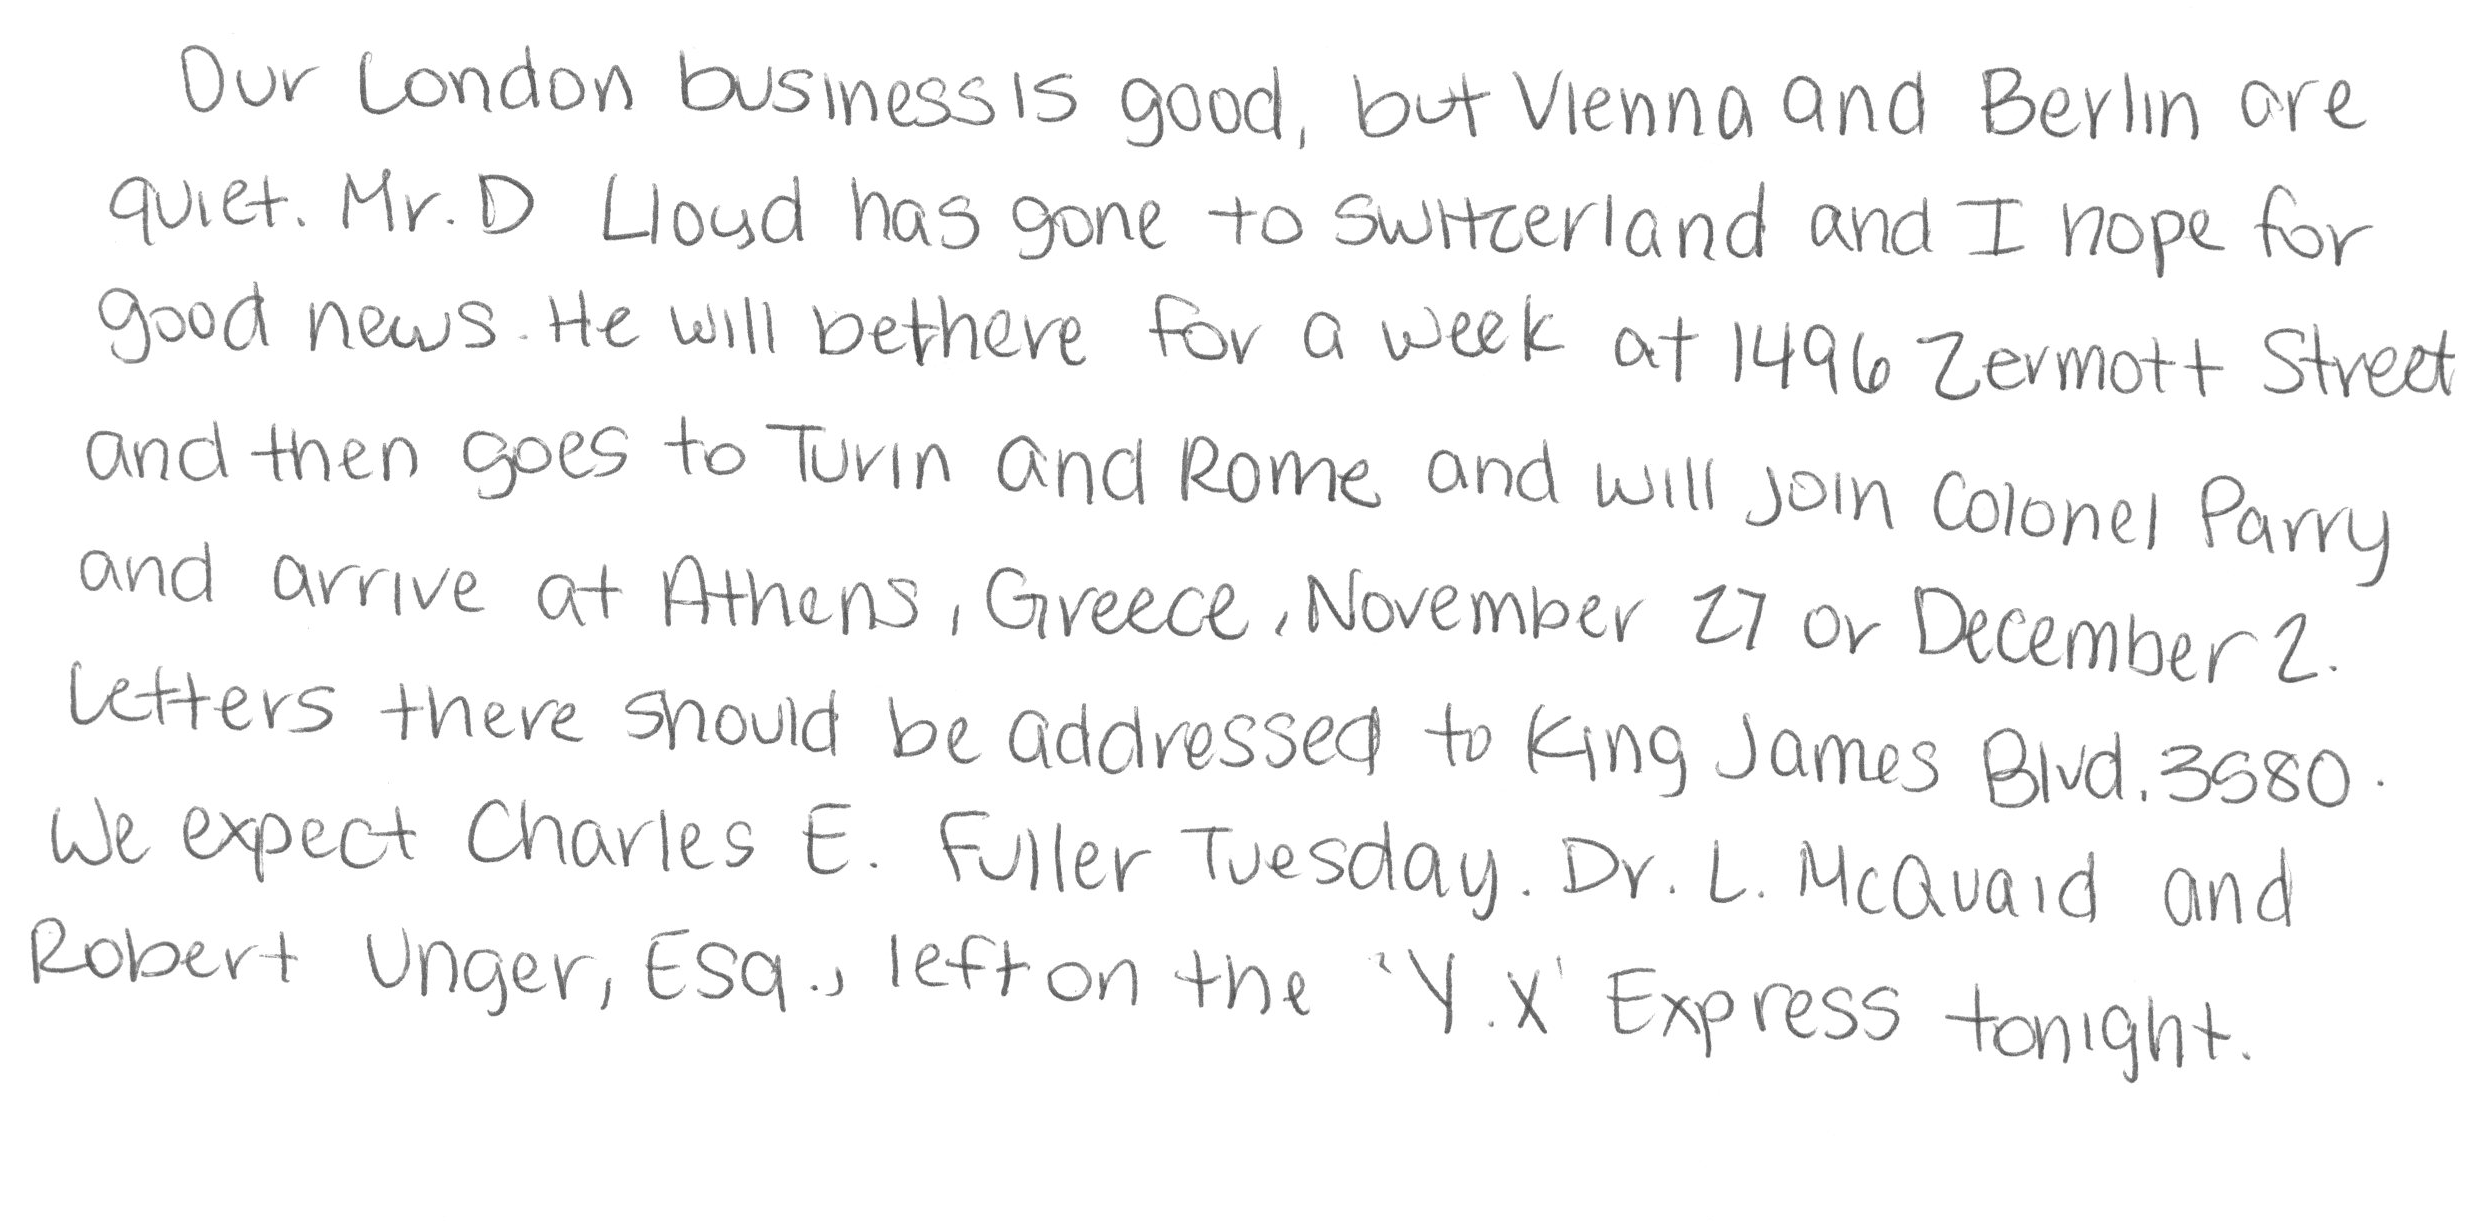 Our London business is good, but Vienna and Berlin are
quiet. Mr. D Lloyd has gone to Switzerland and I hope for
good news. He will be there for a week at 1496 Zermott Street
and then goes to Turin and Rome and will join Colonel Parry
and arrive at Athens, Greece, November 27 or December 2.
Letters there should be addressed to King James Blvd. 3580.
We expect Charles E. Fuller Tuesday. Dr. L. McQuaid and
Robert Unger, Esq., left on the 'Y.X' Express tonight.